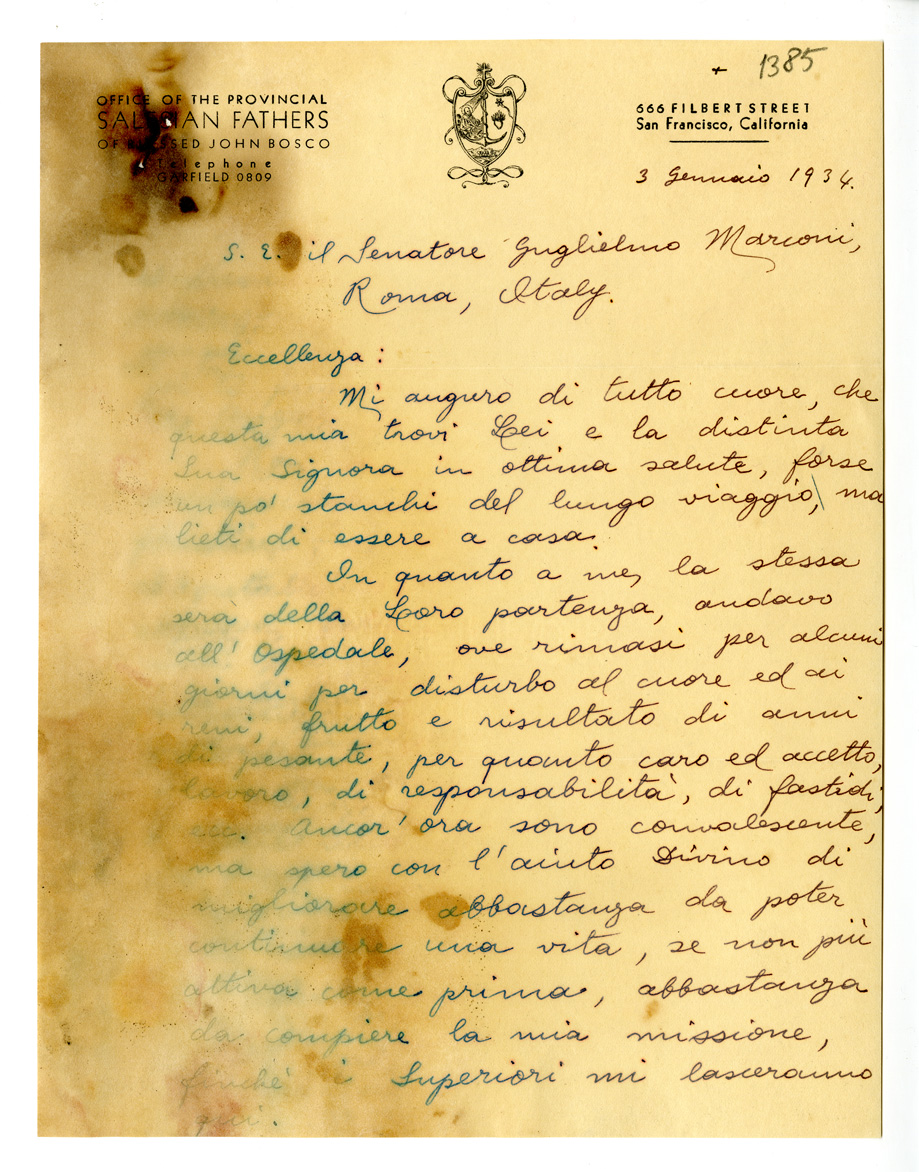 + 1385
OFFICE OF THE PROVINCIAL
SALESIAN FATHERS
OF BLESSED JOHN BOSCO
Telephone
GARFIELD 0809
666 FILBERT STREET
San Francisco, California
3 Gennaio 1934.
S. E. il Senatore Guglielmo Marconi,
Roma, Italy.
Eccellenza:
Mi auguro di tutto cuore, che
questa mia trovi Lei e la distinta
Sua Signora in ottima salute, forse
un po' stanchi del lungo viaggio, ma
lieti di essere a casa.
In quanto a me, la stessa
sera della Loro partenza, andavo
all' Ospedale, ove rimasi per alcuni
giorni per disturbo al cuore ed ai
reni, frutto e risultato di anni
di pesante, per quanto caro ed accetto,
lavoro, di responsabilità, di fastidi,
ecc. Ancor' ora sono convalescente,
ma spero con l'aiuto Divino di
migliorare abbastanza da poter
continuare una vita, se non più
attiva come prima, abbastanza
da compiere la mia missione,
finchè i Superiori mi lasceranno
qui.